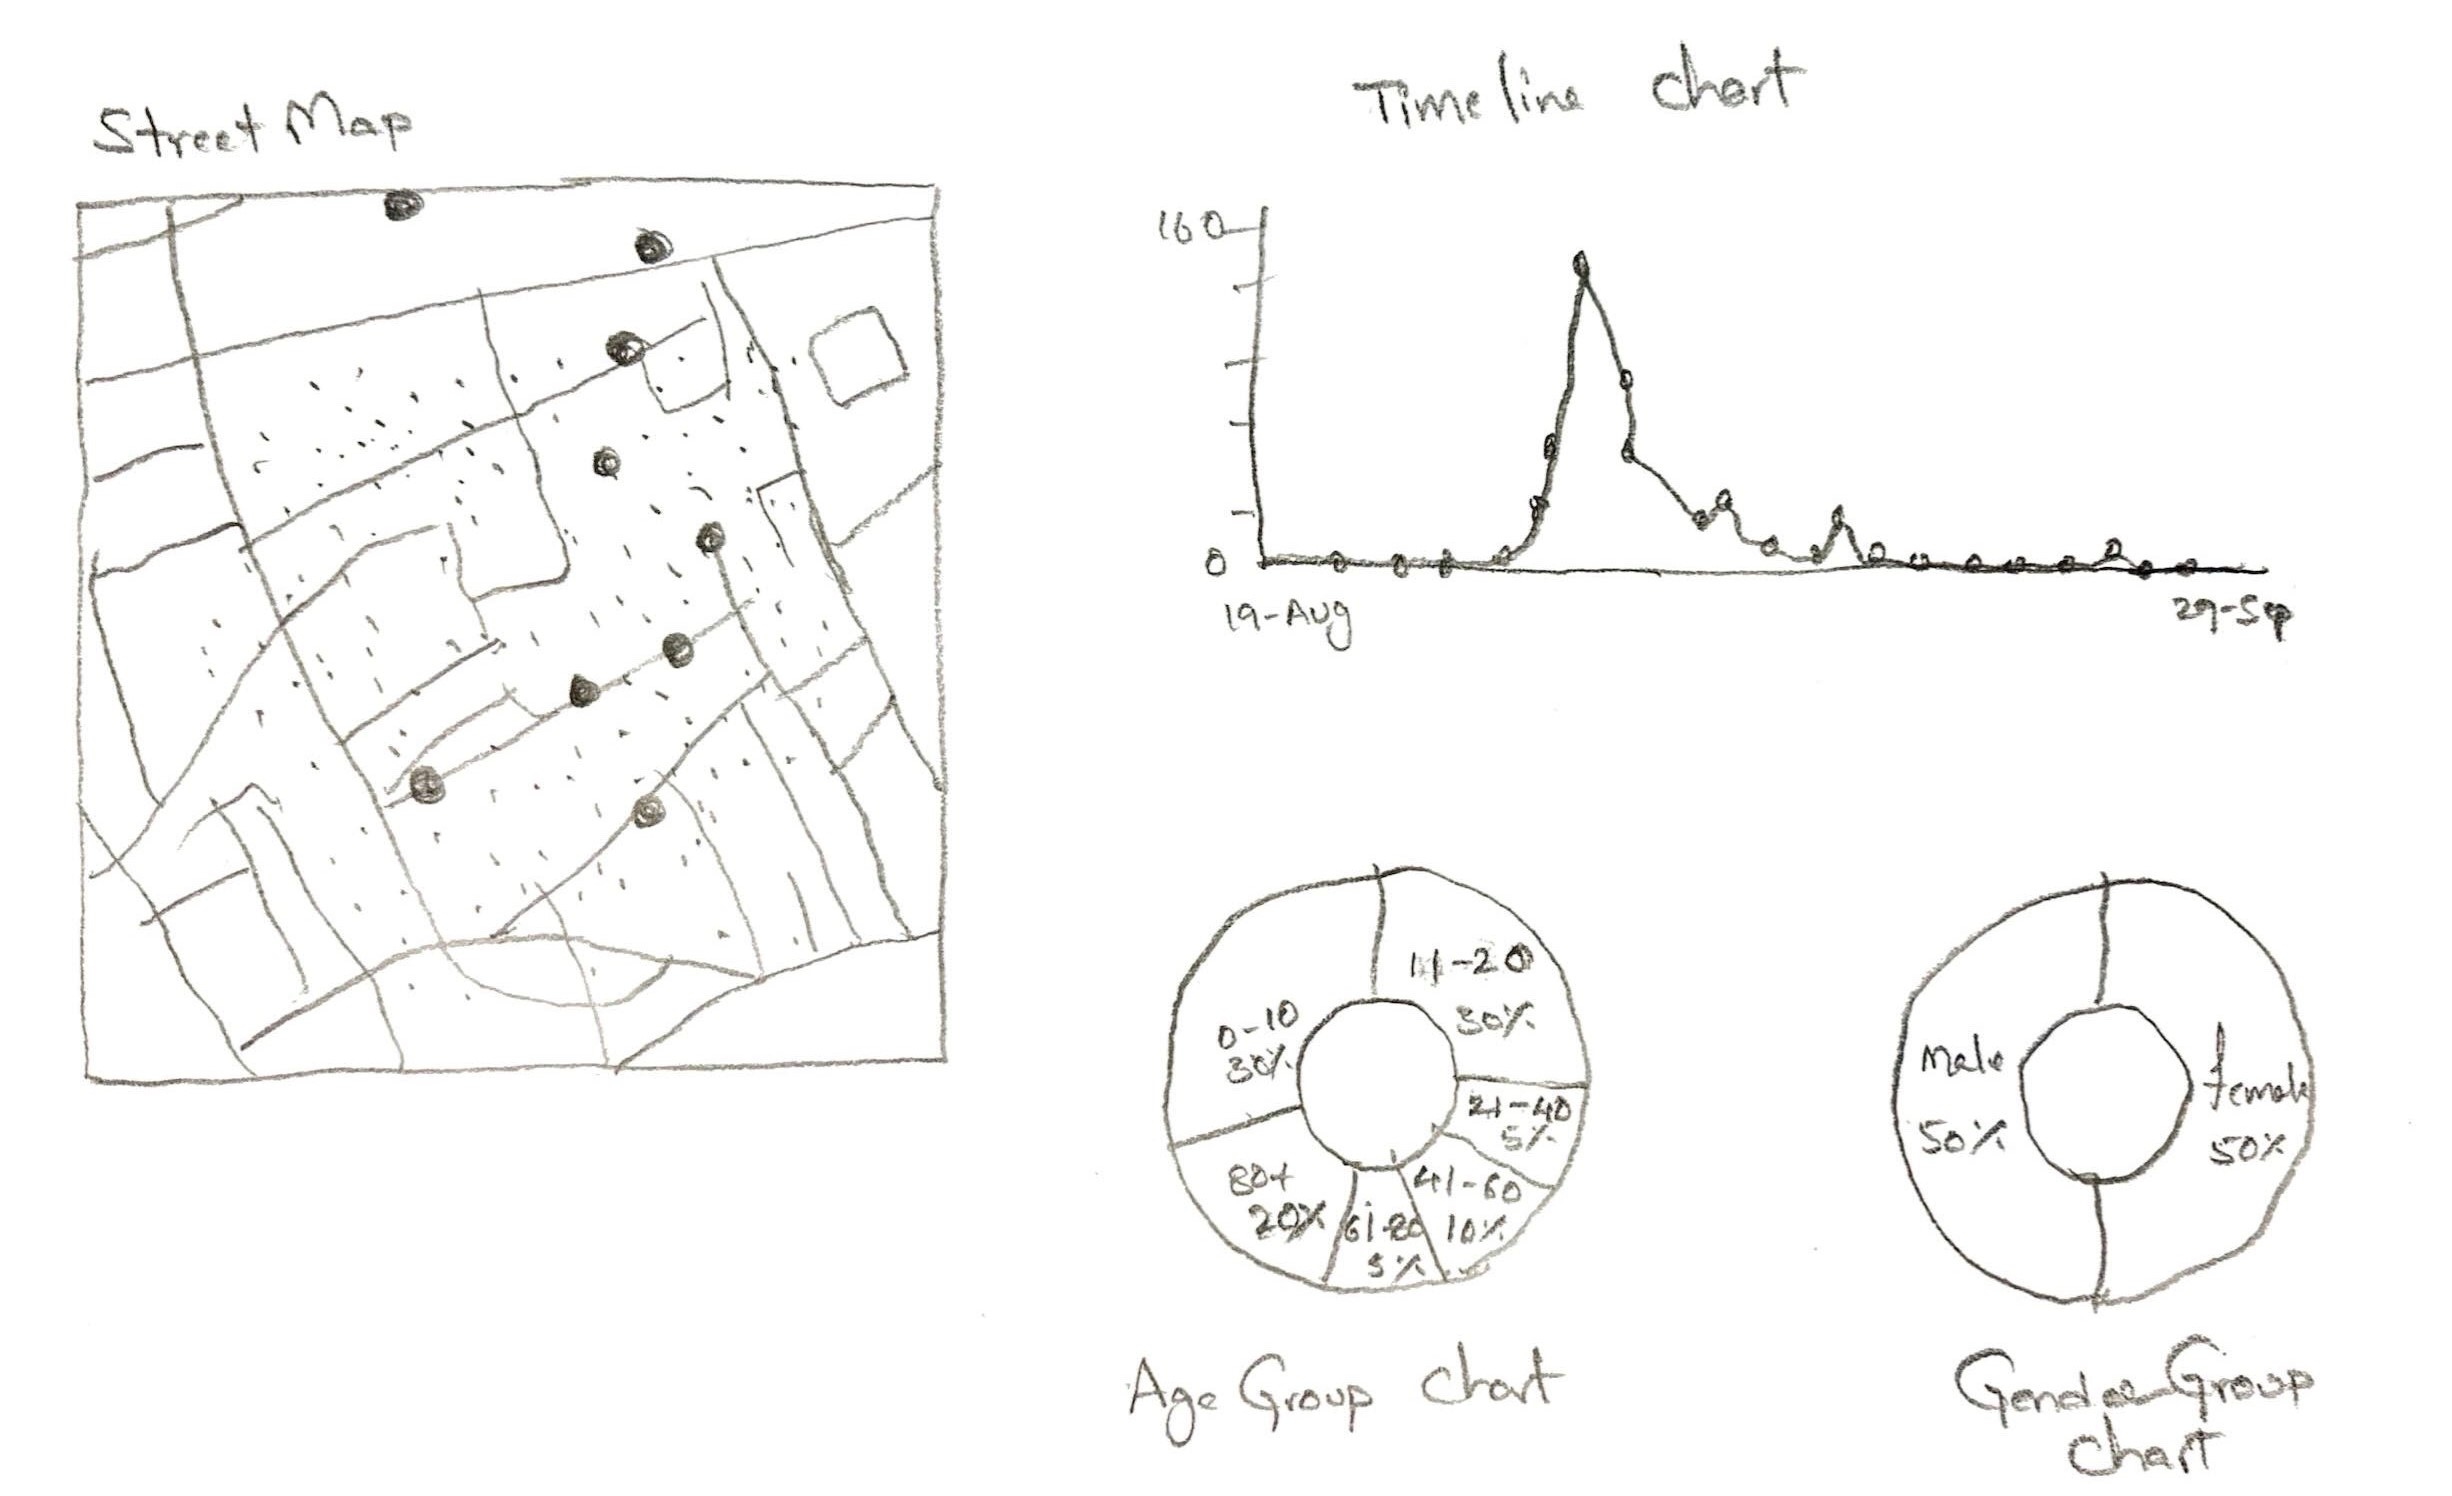 Street Map
Timeline chart
160
0
19-Aug
29-Sep
11-20
30%
0-10
30%
21-40
5%
80+
20%
61-80
5%
41-60
10%
Age Group Chart
Male
50%
female
50%
Gender Group
Chart